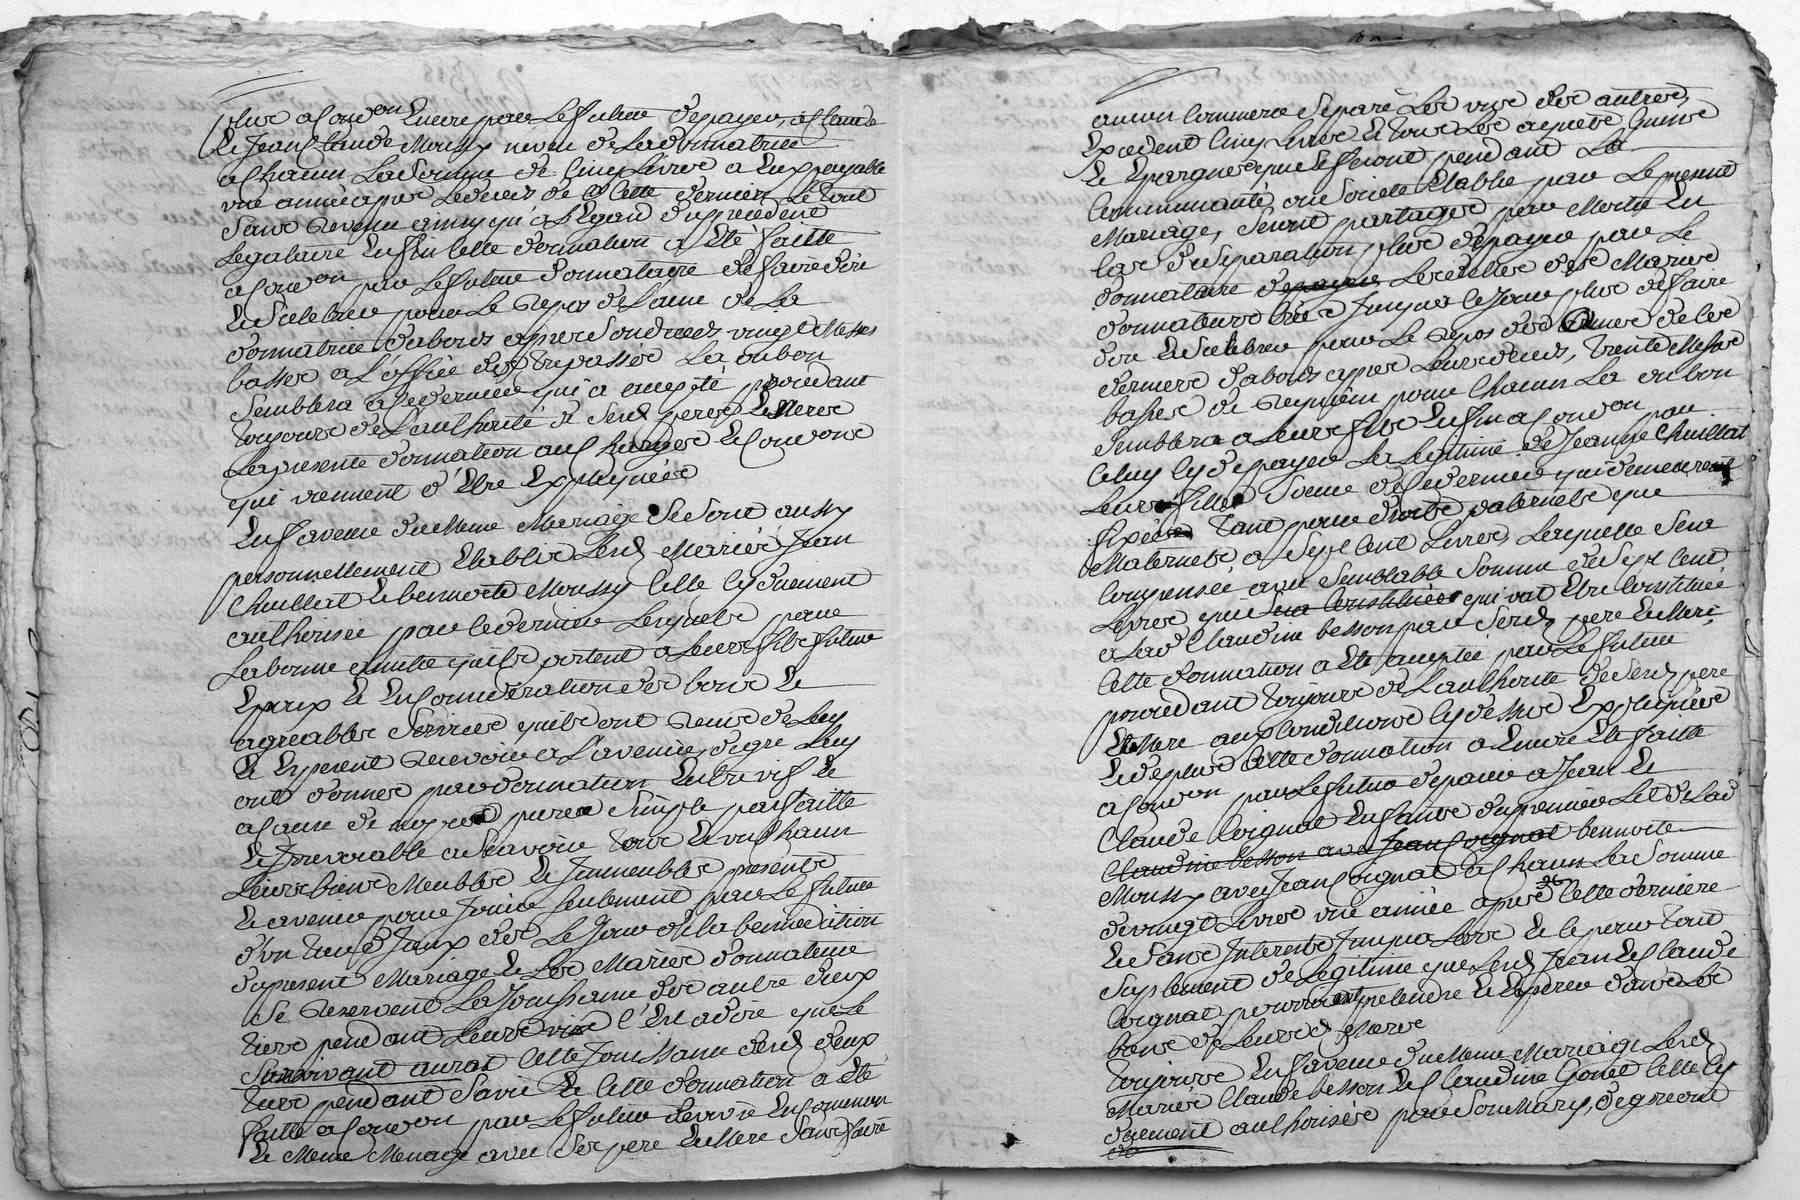 plus a condon Encore pour Le future de payer, a Claude
Et Jean Claude Moussy neveu de La donnatrice
a Chacun La Somme de Cinq Livres a Eux payable
une année apres Le deces de Cette derniere Le tout
Sans Revenu ainsy qu'a l'Egard du precedent
Legataire Enfin Cette donnation a Eté faitte
a Condon par Le future donnataire de faire dire
Et Celebrer pour Le Repos de L'ame de La
donnatrice d'abord apres Son deces vingt Messes
basses a L'office des trepassés La ou bon
Semblera a Ce dernier qui a accepté procedant
toujours de L'authorité de Sesd peres Et Mere
La presente donnation aux Charges Et Condons
qui viennent d'Etre Expliquées
En faveur du Meme Mariage Se Sont aussy
personnellement Etablis Lesd Mariés Jean
Chuillat Et bennoite Moussy Celle Cy duement
authorisée par Ce dernier Lesquels pour
La bonne amitié qu'ils portent a Leurs fils future
Epoux Et En Consideration des bons Et
agreables Services qu'ils ont Recus de Luy
Et Esperent Recevoir a L'avenir, de gré Luy
ont donnés par donnation Entre vifs Et
a Cause de nopces pure Simple parfaitte
Et Irrevocable a Sçavoir tous Et un Chacun
Leurs biens Meubles Et Immeubles presents
Et avenir pour Jouir Seulement par Le future
d'un tier d'Iceux des Le Jour de La bennediction
du present Mariage Et Les Mariés donnateurs
Se Reservent La Jouissance des autre deux
tiers pendant Leurs vies C'Est a dire que Le
Survivant aurat Cette Jouissance desd deux
tiers pendant Sa vie Et Cette donnation a Eté
faitte a Condon par Le future de vivre En Commun
Et Meme Menage avec Ses pere Et Mere Sans faire
aucun Commerce Separé Les uns des autres,
Excedent Cinq Livres Et tous Les acquets Gains
Et Epargnes que Se feront pendant La
Communauté ou Societé Etablie par Le present
Mariage, Seront partagés par Moitié En
Cas de Separation plus de payer par Le
donnataire Les dettes des Mariés
donnateurs Jusqua Ce Jour plus de faire
dire Et Celebrer pour Le Repos des ames de Ces
derniers d'abord apres Leurs deces, trente Messes
basses de Requiem pour Chacun La ou bon
Semblera a Leurs fils Enfin a Condon par
Celuy Cy de payer La Legitime de Jeanne Chuillat
Leurs fille Soeur de Ce dernier qui demeurerat
fixée tant pour droits paternels que
Maternels, a Sept Cent Livres, Laquelle Sera
Compensée avec Semblable Somme de Sept Cent
Livres que sera Constituée qui vat Etre Constituée
a Lad Claudine besson par Sesd pere Et Mere
Cette donnation a Eté acceptée par Le future
procedant toujours de L'authorité de Sesd pere
Et Mere aux Conditions Cy dessus Expliquées
Et de plus Cette donnation a Encore Eté faitte
a Condon par Le future de paier a Jean Et
Claude Coignat Enfants du premier Lit de Lad
Claudine besson avec Jean Coignat bennoite
Moussy avec Jean Coignat a Chacun La Somme
de vingt Livres une année apres Cette derniere
Et Sans Interets Jusqua Lors Et Ce pour tout
Suplement de Legitime que Lesd Jean Et Claude
Coignat pourroient pretendre Et Esperer dans Les
biens de Leurs Meres
toujours En faveur du Meme Mariage Lesd
Mariés Claude besson Et Claudine Gonet Celle Cy
duement authorisée par Son Mary, de gré ont